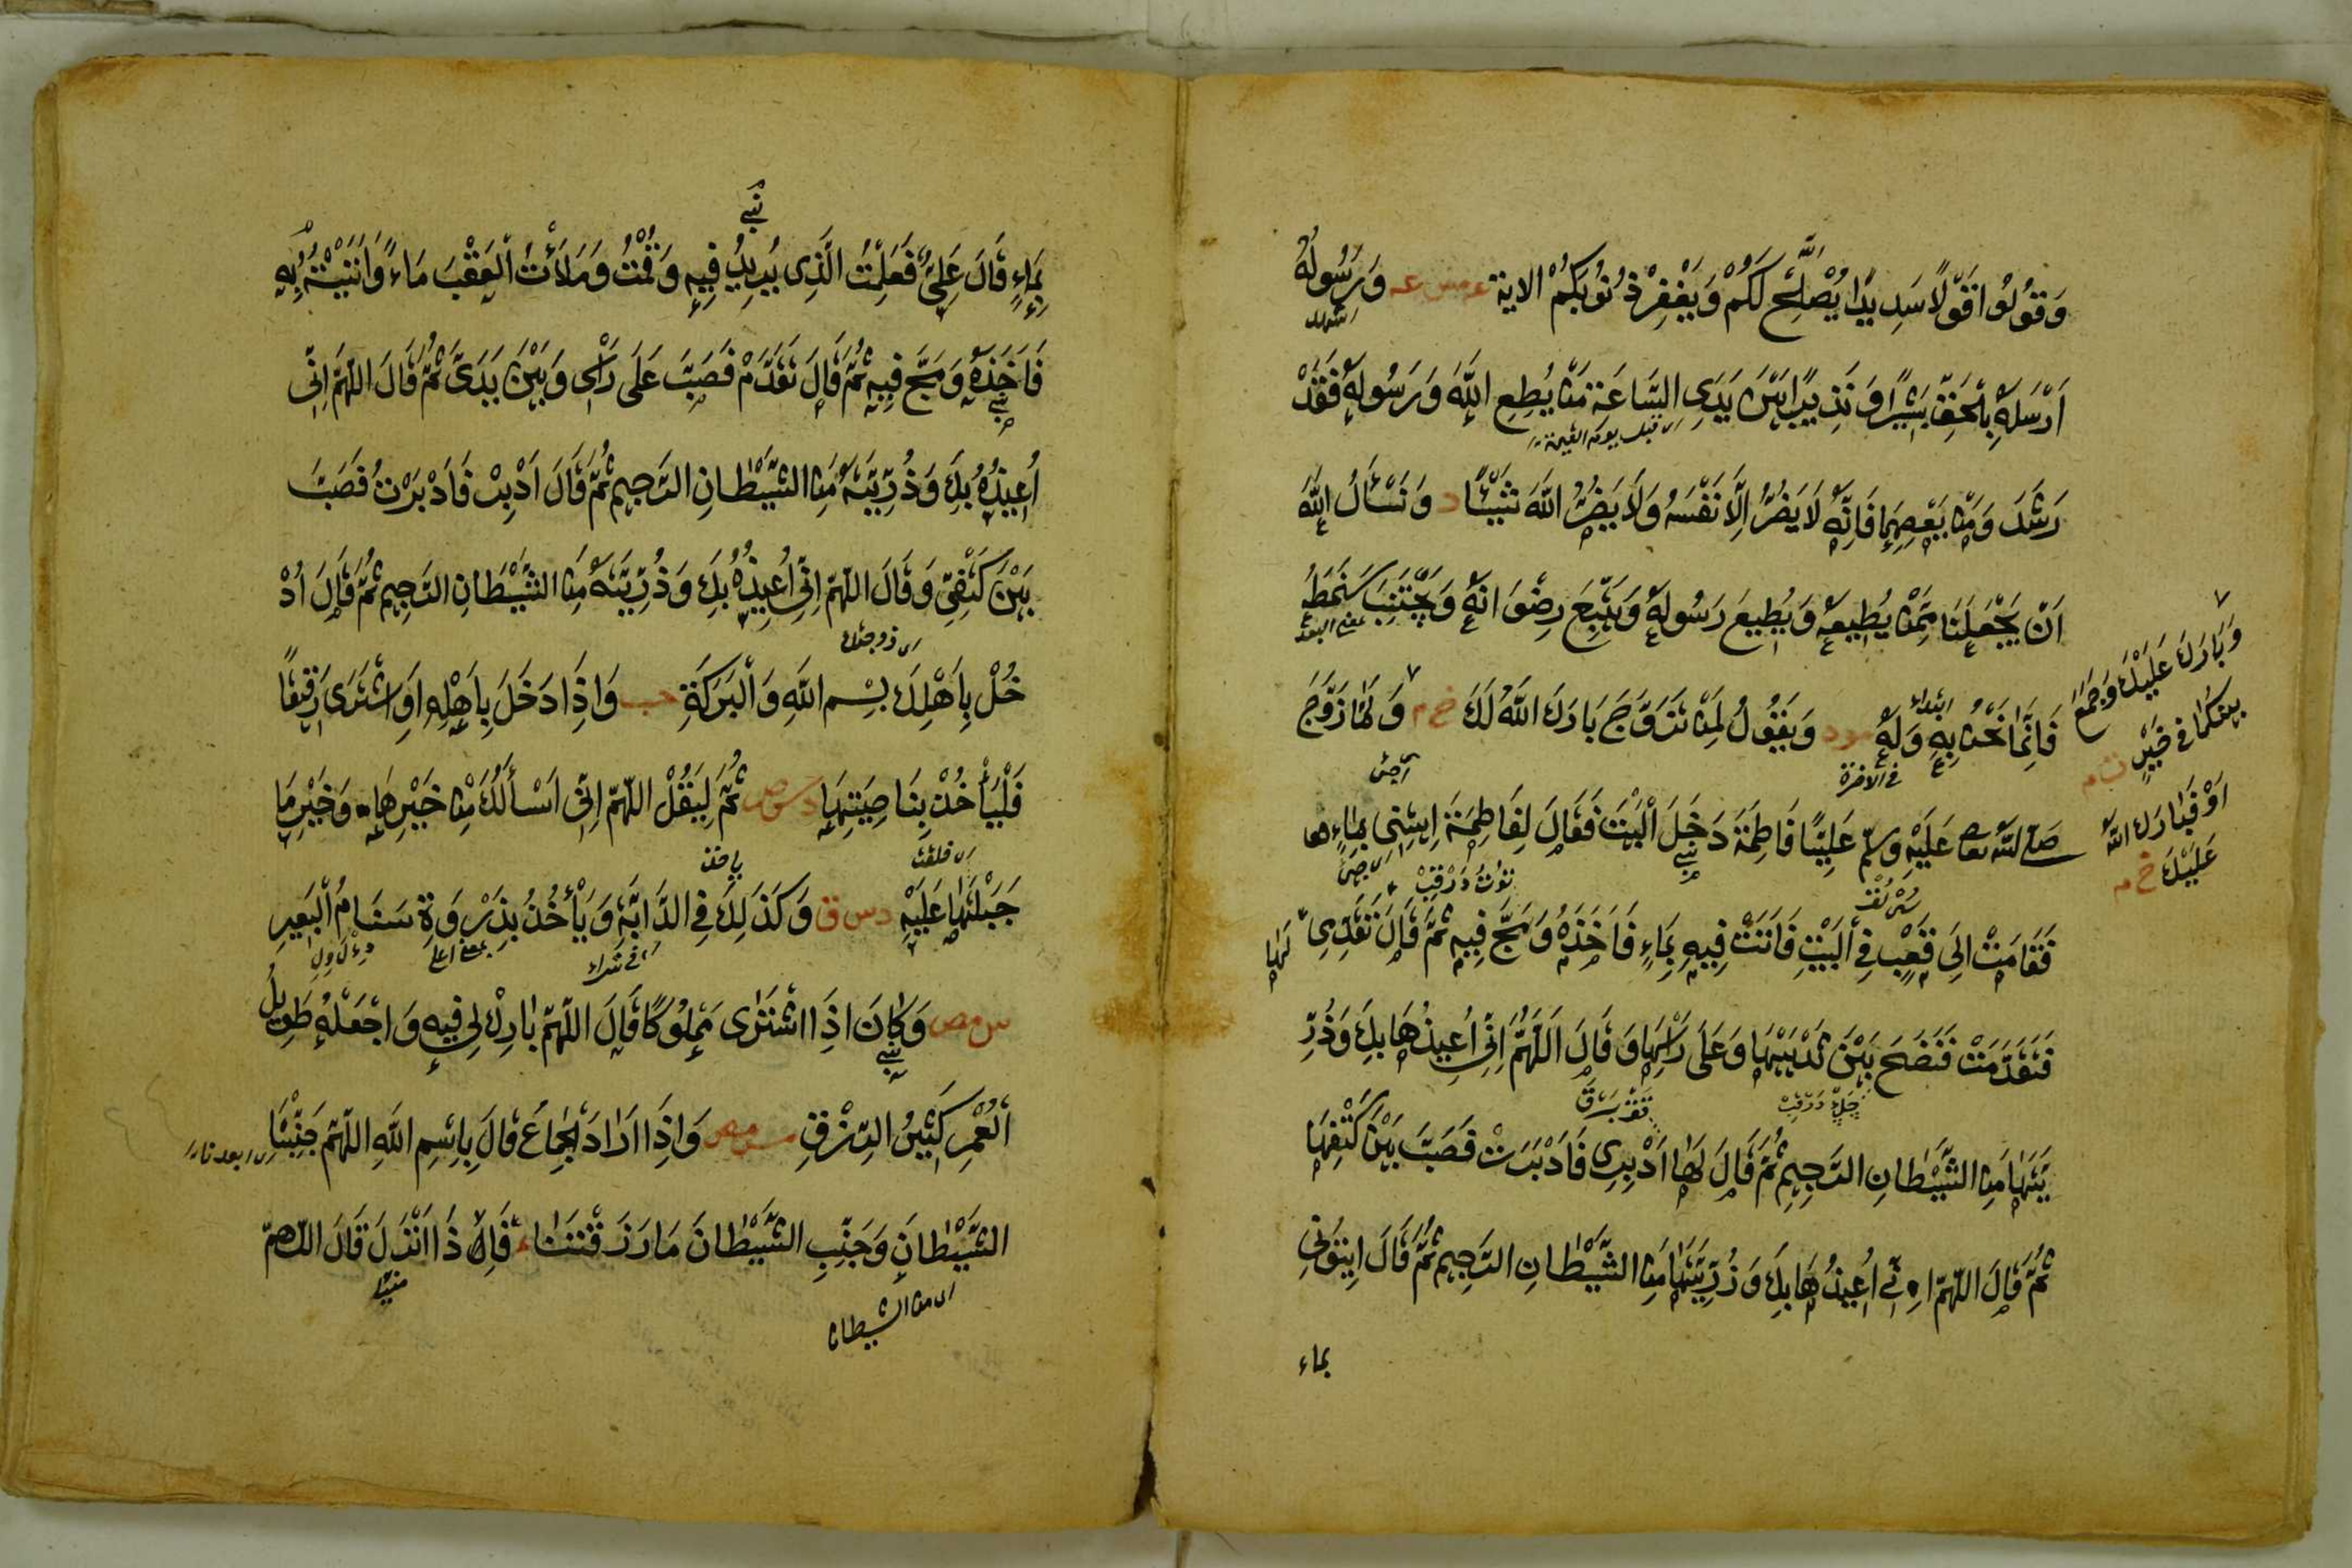 وَقُولُوا قَوْلًا سَدِيدًا يُصْلِحْ لَكُمْ وَيَغْفِرْ ذُنُوبَكُمْ الاية عه مس عه وَرَسُولُهُ
اَرْسَلَهُ بِالْحَقِّ بَشِيْرًا وَنَذِيرًا بَيْنَ يَدَيِ السَّاعَةِ مَنْ يُطِعِ اللّٰهَ وَرَسُولَهُ فَقَدْ
اى قبل يوم القيمة
رَشَدَ وَمَنْ يَعْصِهِمَا فَاِنَّهُ لَا يَضُرُّ اِلَّا نَفْسَهُ وَلَا يَضُرُّ اللّٰهَ شَيْئًا د وَنَسْأَلُ اللّٰهَ
اَنْ يَجْعَلَنَا مِمَّنْ يُطِيعُهُ وَيُطِيعُ رَسُولَهُ وَيَتَّبِعُ رِضْوَانَهُ وَيَجْتَنِبُ سَخَطَهُ
فَاِنَّمَا نَحْنُ بِهِ وَلَهُ مو د وَيَقُولُ لِمَنْ تَزَوَّجَ بَارَكَ اللّٰهُ لَكَ خ م وَلَمَّا زَوَّجَ
فى الاخرة
صلى الله تعا عَلَيْهِ وسلم عَلِيًّا فَاطِمَةَ دَخَلَ الْبَيْتَ فَقَالَ لِفَاطِمَةَ اِيتِنِى بِمَاءٍ
فَقَامَتْ اِلَى قَعْبٍ فِى الْبَيْتِ فَاَتَتْ فِيهِ بِمَاءٍ فَاَخَذَهُ وَمَجَّ فِيهِ ثُمَّ قَالَ تَقَدَّمِى لَهَا
فَتَقَدَّمَتْ فَنَضَحَ بَيْنَ ثَدْيَيْهَا وَعَلَى رَأْسِهَا وَقَالَ اَللّٰهُمَّ اِنِّى اُعِيذُهَا بِكَ وَذُرِّ
يَّتَهَا مِنَ الشَّيْطَانِ الرَّجِيمِ ثُمَّ قَالَ لَهَا اَدْبِرِى فَاَدْبَرَتْ فَصَبَّ بَيْنَ كَتِفَيْهَا
ثُمَّ قَالَ اللّٰهُمَّ اِنِّى اُعِيذُهَا بِكَ وَذُرِّيَّتَهَا مِنَ الشَّيْطَانِ الرَّجِيمِ ثُمَّ قَالَ اِيتُونِى
بماء
وَبَارَكَ عَلَيْكَ وَجَمَعَ
بينكما فى خَيْرٍ
اَوْ فَبَارَكَ اللّٰهُ
عَلَيْكَ خ م
بِمَاءٍ قَالَ عَلِىٌّ فَعَلِمْتُ الَّذِى يُرِيدُ فِيهِ وَقُمْتُ وَمَلَأْتُ الْقَعْبَ مَاءً وَاَتَيْتُهُ بِهِ
فَاَخَذَهُ وَمَجَّ فِيهِ ثُمَّ قَالَ تَقَدَّمْ فَصَبَّ عَلَى رَأْسِى وَبَيْنَ يَدَىَّ ثُمَّ قَالَ اللّٰهُمَّ اِنِّى
اُعِيذُهُ بِكَ وَذُرِّيَّتَهُ مِنَ الشَّيْطَانِ الرَّجِيمِ ثُمَّ قَالَ اَدْبِرْ فَاَدْبَرْتُ فَصَبَّ
بَيْنَ كَتِفَىَّ وَقَالَ اللّٰهُمَّ اِنِّى اُعِيذُهُ بِكَ وَذُرِّيَّتَهُ مِنَ الشَّيْطَانِ الرَّجِيمِ ثُمَّ قَالَ ادْ
خُلْ بِاَهْلِكَ بِسْمِ اللّٰهِ وَالْبَرَكَةِ حب وَاِذَا دَخَلَ بِاَهْلِهِ اَوِ اشْتَرَى رَقِيقًا
فَلْيَأْخُذْ بِنَاصِيَتِهَا د س ص ثُمَّ لِيَقُلْ اللّٰهُمَّ اِنِّى اَسْأَلُكَ مِنْ خَيْرِهَا وَخَيْرِ مَا
اى خلقت
جَبَلْتَهَا عَلَيْهِ د س ق وَكَذَلِكَ فِى الدَّابَّةِ وَيَأْخُذُ بِذِرْوَةِ سَنَامِ الْبَعِيرِ
س مص وَكَانَ اِذَا اشْتَرَى مَمْلُوكًا قَالَ اللّٰهُمَّ بَارِكْ لِى فِيهِ وَاجْعَلْهُ طَوِيلَ
الْعُمْرِ كَثِيرَ الرِّزْقِ مو مص وَاِذَا اَرَادَ الْجِمَاعَ قَالَ بِاسْمِ اللّٰهِ اللّٰهُمَّ جَنِّبْنَا
الشَّيْطَانَ وَجَنِّبِ الشَّيْطَانَ مَا رَزَقْتَنَا ع فَاِذَا اَنْزَلَ قَالَ اللّٰهُمَّ
اى من الشيطان